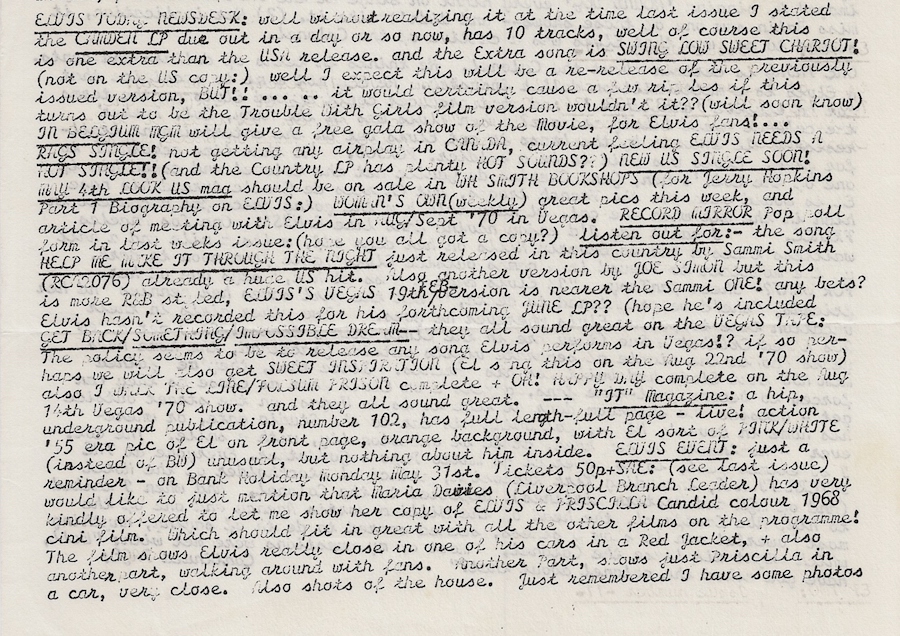 ELVIS TODAY NEWSDESK: well without realizing it at the time last issue I stated
the CAMDEN LP due out in a day or so now, has 10 tracks, well of course this
is one extra than the USA release. and the Extra song is SWING LOW SWEET CHARIOT!
(not on the US copy:) well I expect this will be a re-release of the previously
issued version, BUT!! ... .. it would certainly cause a few ripples if this
turns out to be the Trouble With Girls film version wouldn't it??(will soon know)
IN BELGIUM MGM will give a free gala show of the Movie, for Elvis fans!...
RAGS SINGLE! not getting any airplay in CANADA, current feeling ELVIS NEEDS A
HOT SINGLE!!(and the Country LP has plenty HOT SOUNDS?:) NEW US SINGLE SOON!
MAY 4th LOOK US mag should be on sale in WH SMITH BOOKSHOPS (for Jerry Hopkins
Part 1 Biography on ELVIS:) WOMAN'S OWN(weekly) great pics this week, and
article of meeting with Elvis in AUG/Sept '70 in Vegas. RECORD MIRROR Pop poll
form in last weeks issue:(hope you all got a copy?) listen out for:- the song
HELP ME MAKE IT THROUGH THE NIGHT just released in this country by Sammi Smith
(RCA2076) already a huge US hit. Also another version by JOE SIMON but this
is more R&B styled, ELVIS'S VEGAS 19th FEB version is nearer the Sammi ONE! any bets?
Elvis hasn't recorded this for his forthcoming JUNE LP?? (hope he's included
GET BACK/SOMETHING/IMPOSSIBLE DREAM-- they all sound great on the VEGAS TAPE:
The policy seems to be to release any song Elvis performs in Vegas!? if so per-
haps we will also get SWEET INSPIRATION (El sang this on the Aug 22nd '70 show)
also I WALK THE LINE/FOLSUM PRISON complete + OH! HAPPY DAY complete on the Aug
14th Vegas '70 show. and they all sound great. --- "IT" Magazine: a hip,
underground publication, number 102, has full length-full page - live! action
'55 era pic of El on front page, orange background, with El sort of PINK/WHITE
(instead of BW) unusual, but nothing about him inside. ELVIS EVENT: just a
reminder - on Bank Holiday Monday May 31st. Tickets 50p+SAE: (see last issue)
would like to just mention that Maria Davies (Liverpool Branch Leader) has very
kindly offered to let me show her copy of ELVIS & PRISCILLA Candid colour 1968
cini film. Which should fit in great with all the other films on the programme!
The film shows Elvis really close in one of his cars in a Red Jacket, + also
another part, walking around with fans. Another Part, shows just Priscilla in
a car, very close. Also shots of the house. Just remembered I have some photos